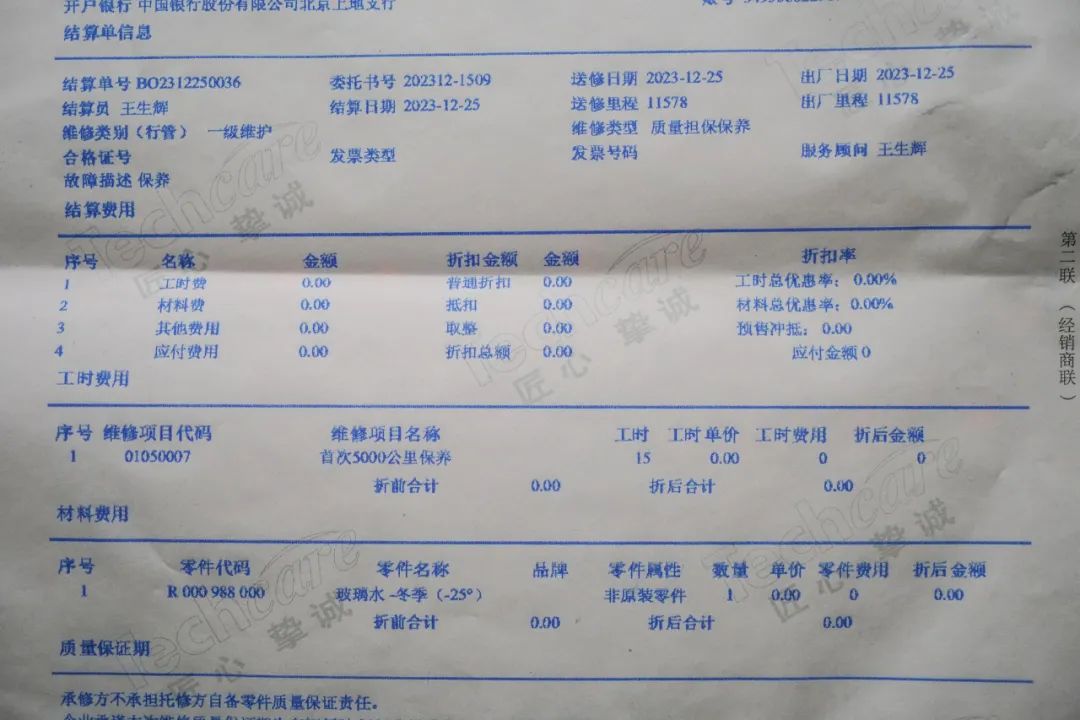 开户银行 中国银行股份有限公司北京上地支行 账号
结算单信息
结算单号 BO2312250036 委托书号 202312-1509 送修日期 2023-12-25 出厂日期 2023-12-25
结算员 王生辉 结算日期 2023-12-25 送修里程 11578 出厂里程 11578
维修类别（行管） 一级维护 维修类型 质量担保保养
合格证号 发票类型 发票号码 服务顾问 王生辉
故障描述 保养
结算费用
序号 名称 金额 折扣金额 金额 折扣率
1 工时费 0.00 普通折扣 0.00 工时总优惠率：0.00%
2 材料费 0.00 抵扣 0.00 材料总优惠率：0.00%
3 其他费用 0.00 取整 0.00 预售冲抵：0.00
4 应付费用 0.00 折扣总额 0.00 应付金额 0
工时费用
序号 维修项目代码 维修项目名称 工时 工时单价 工时费用 折后金额
1 01050007 首次5000公里保养 15 0.00 0 0
折前合计 0.00 折后合计 0.00
材料费用
序号 零件代码 零件名称 品牌 零件属性 数量 单价 零件费用 折后金额
1 R 000 988 000 玻璃水 -冬季（-25°） 非原装零件 1 0.00 0 0.00
折前合计 0.00 折后合计 0.00
质量保证期
承修方不承担托修方自备零件质量保证责任。
第二联（经销商联）
Techcare
匠心 挚诚